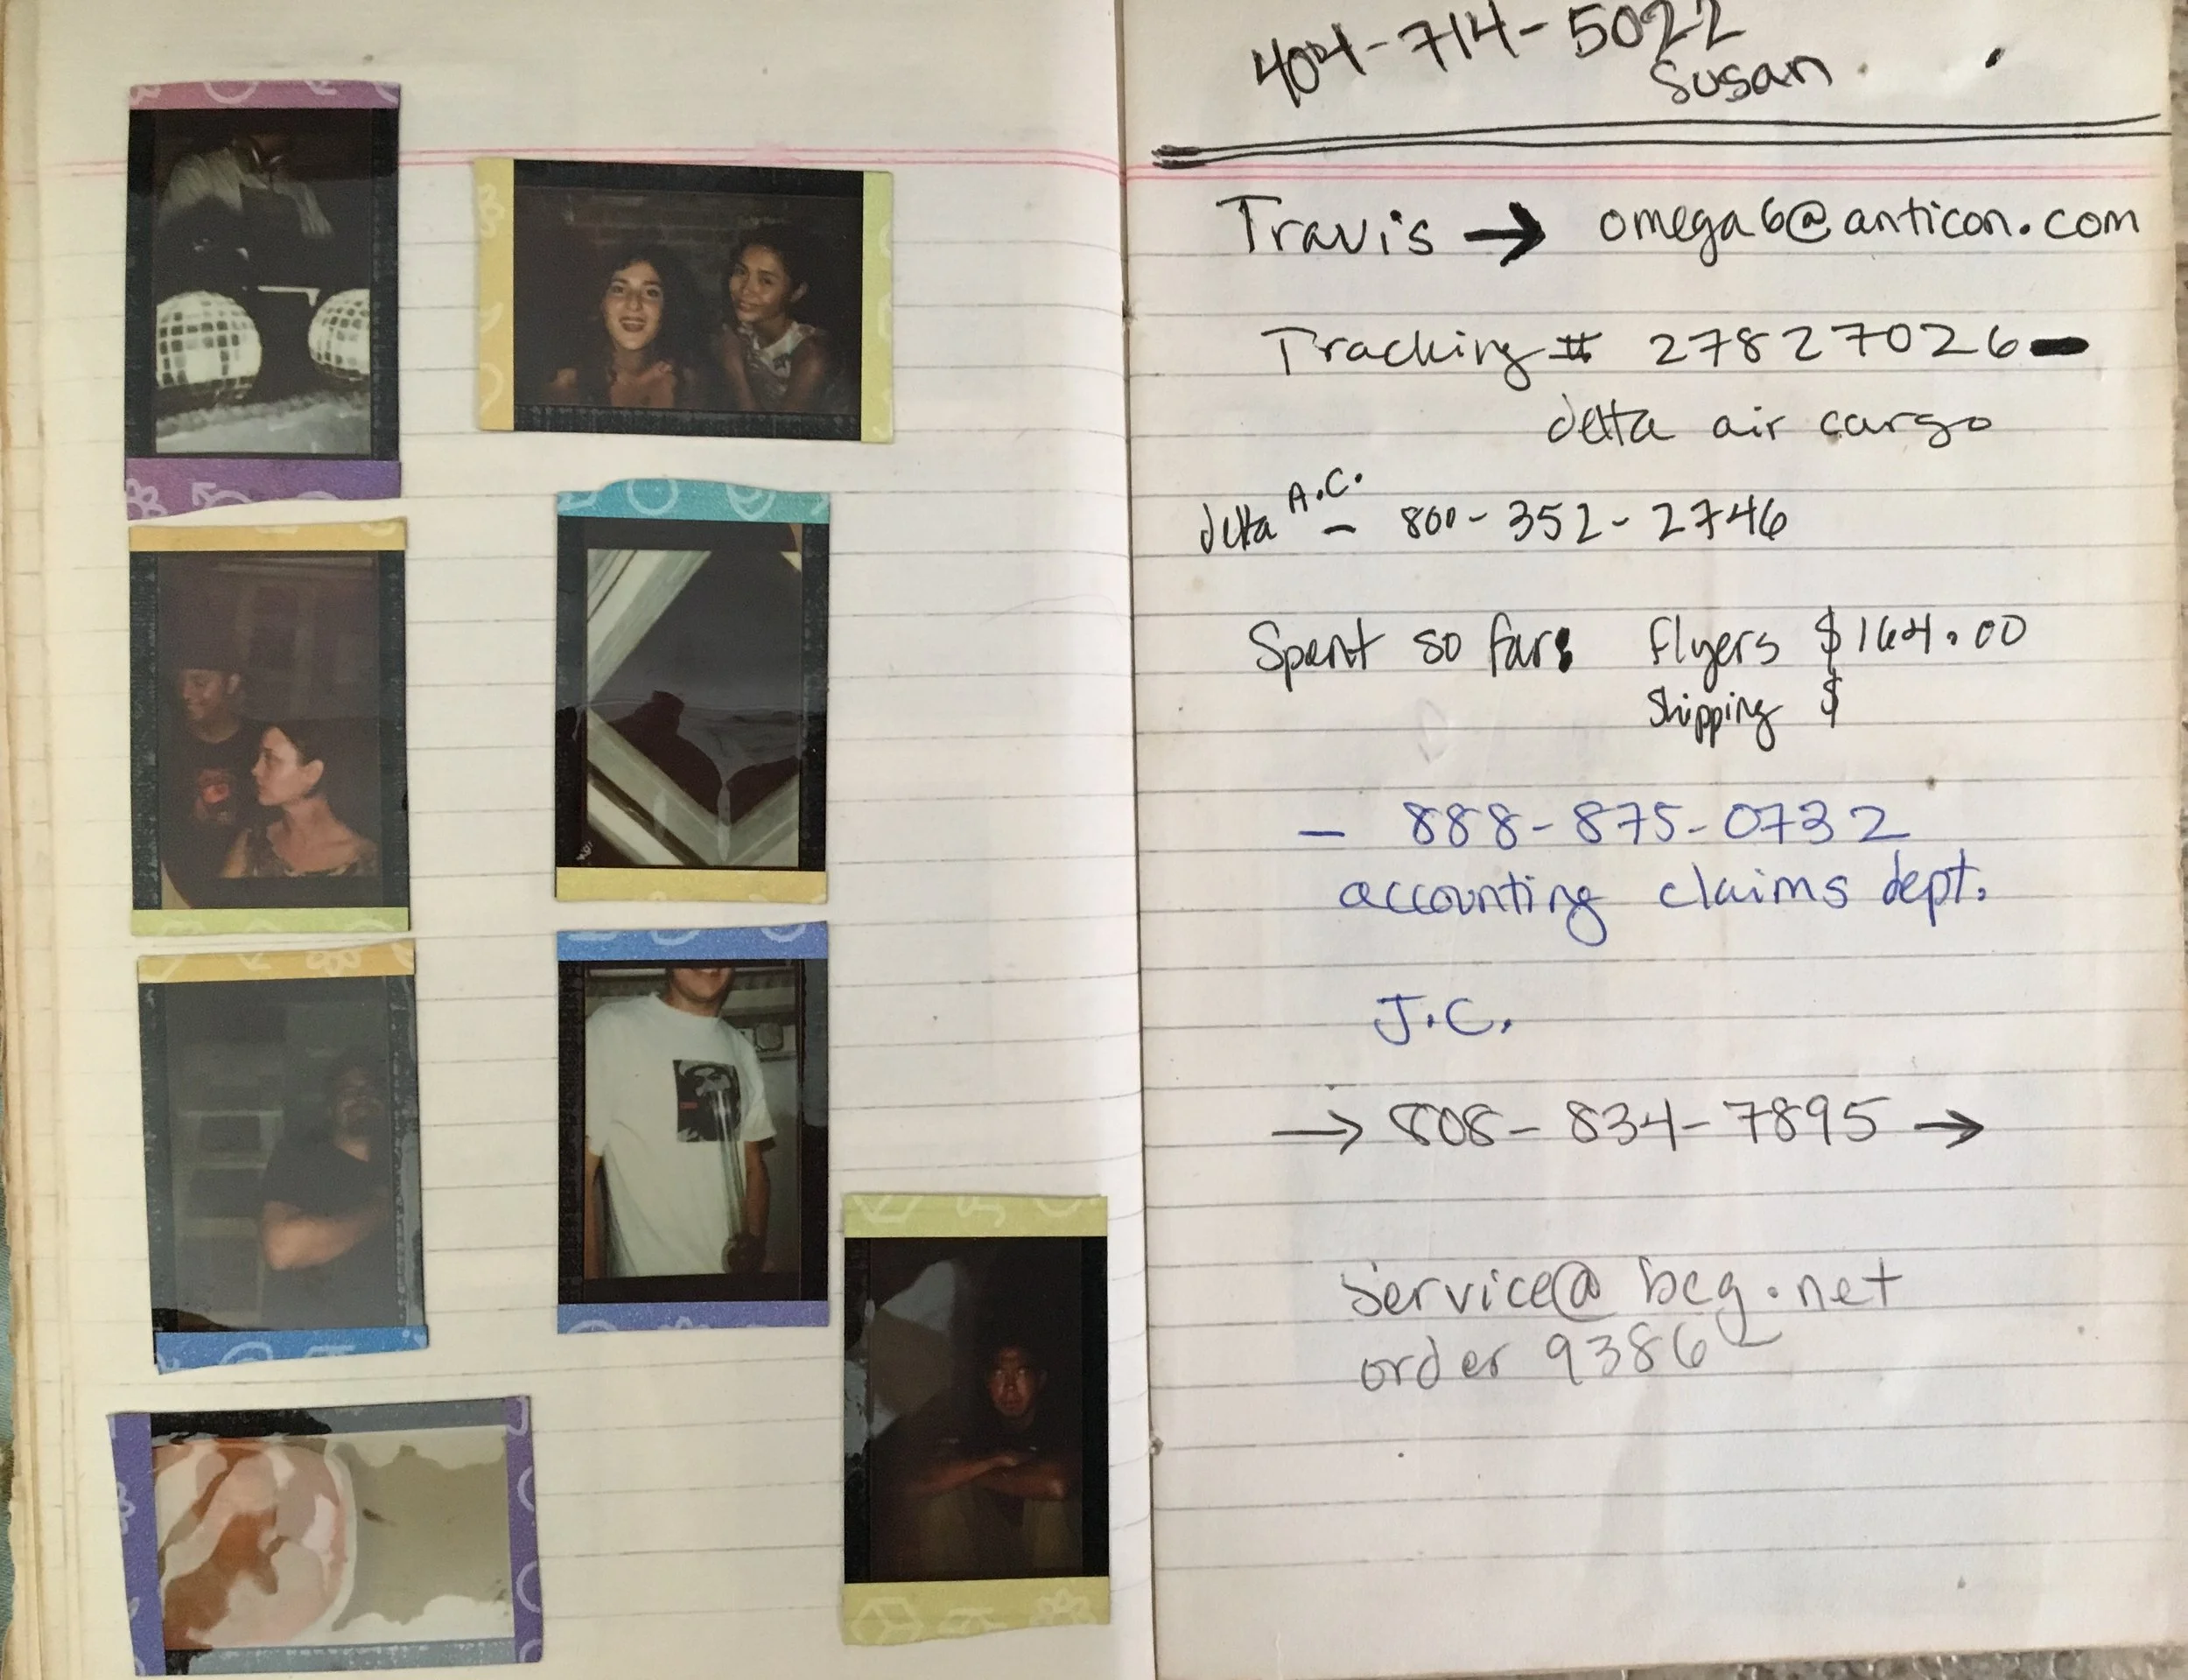 404-714-5022
Susan
Travis → omega6@anticon.com
Tracking # 27827026
delta air cargo
delta A.C. - 800-352-2746
Spent so far: flyers $164.00
Shipping $
- 888-875-0732
accounting claims dept.
J.C.
→ 808-834-7895 →
service@bcg.net
order 9386